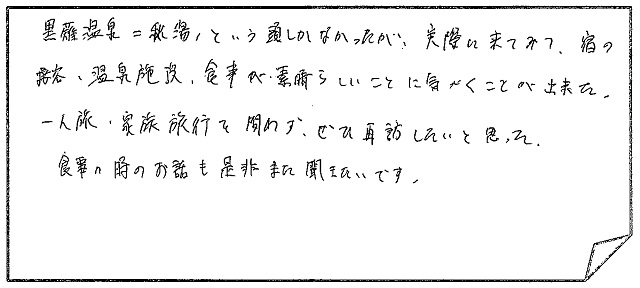 黒薙温泉=秘湯、という頭しかなかったが、実際に来てみて、宿の
接客、温泉施設、食事が素晴らしいことに気がくことが出来た。
一人旅・家族旅行を問わず、ぜひ再訪したいと思った。
食事の時のお話も是非また聞きたいです。